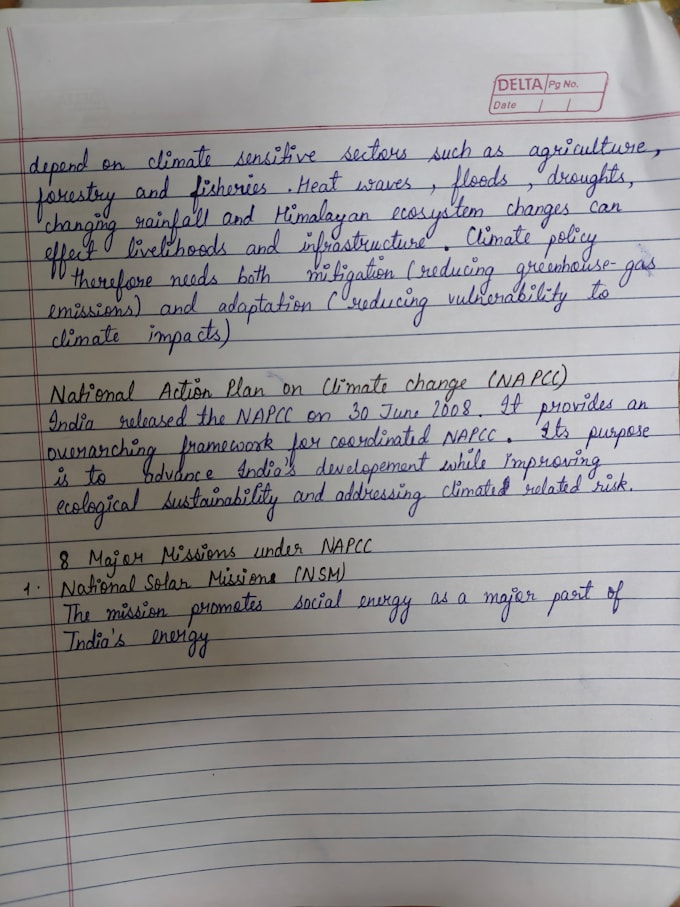 DELTA Pg No.
Date / /
depend on climate sensitive sectors such as agriculture,
forestry and fisheries . Heat waves , floods , droughts,
changing rainfall and Himalayan ecosystem changes can
effect livelihoods and infrastructure . Climate policy
therefore needs both mitigation (reducing greenhouse-gas
emissions) and adaptation (reducing vulnerability to
climate impacts)
National Action Plan on Climate change (NAPCC)
India released the NAPCC on 30 June 2008. It provides an
overarching framework for coordinated NAPCC . Its purpose
is to advance India's developement while improving
ecological sustainability and addressing climated related risk.
8 Major Missions under NAPCC
1. National Solar Missions (NSM)
The mission promotes social energy as a major part of
India's energy